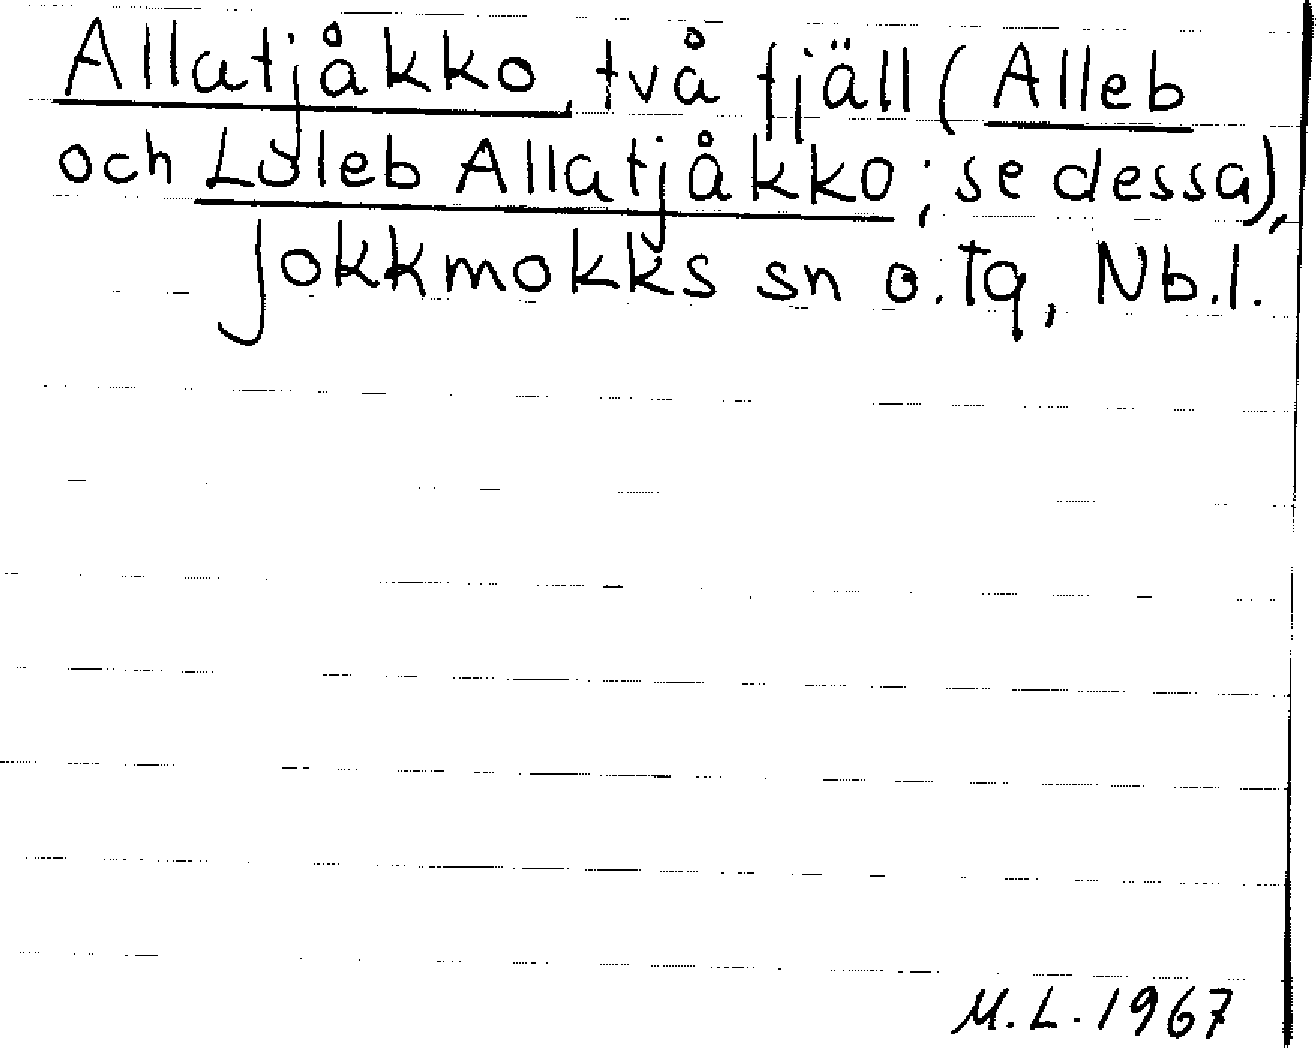 Allatjåkko, två fjäll (Alleb
och Luleb Allatjåkko; se dessa),
Jokkmokks sn o. Tg, Nb.l.
M.L. 1967